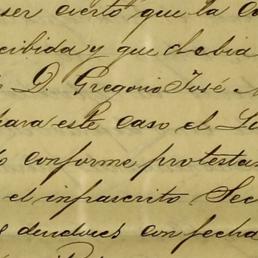 ser cierto que la Co
cibida y que debia
D. Gregorio José
para este caso el
conforme protesta
el infrascrito Sec
deudores con fecha